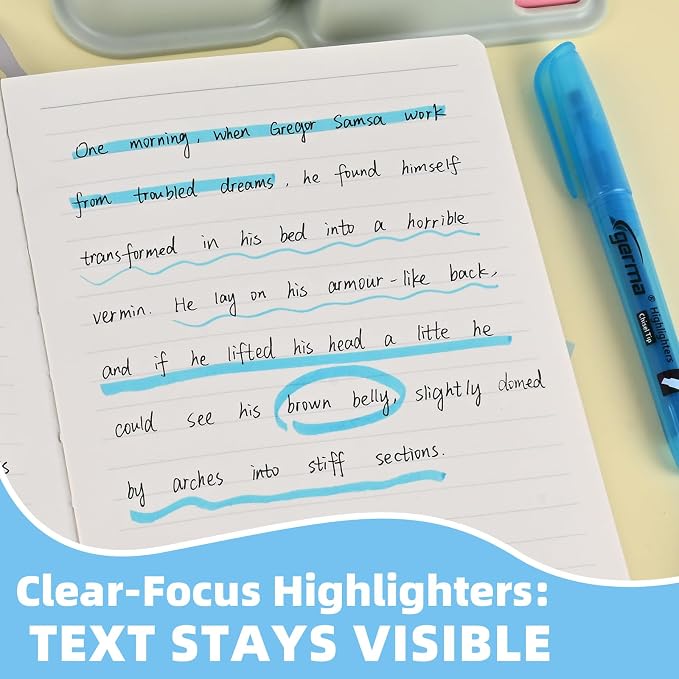 One morning, when Gregor Samsa work
from troubled dreams, he found himself
transformed in his bed into a horrible
vermin. He lay on his armour-like back,
and if he lifted his head a litte he
could see his brown belly, slightly domed
by arches into stiff sections.
germa® Highlighters
Chisel Tip
s
Clear-Focus Highlighters:
TEXT STAYS VISIBLE